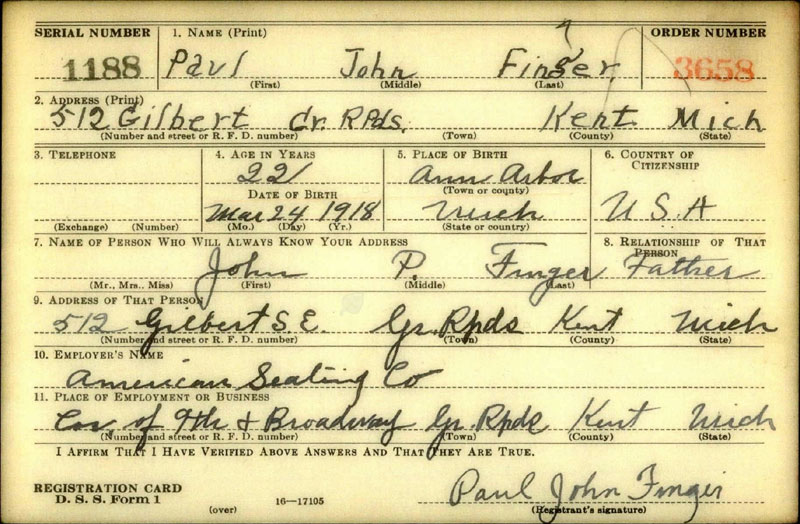 SERIAL NUMBER 1. NAME (Print) ORDER NUMBER
1188 Paul John Finger 3658
(First) (Middle) (Last)
2. ADDRESS (Print)
512 Gilbert Gr. Rpds. Kent Mich
(Number and street or R. F. D. number) (Town) (County) (State)
3. TELEPHONE 4. AGE IN YEARS 5. PLACE OF BIRTH 6. COUNTRY OF CITIZENSHIP
22 Ann Arbor
(Town or county)
DATE OF BIRTH
Mar 24 1918 Mich U S A
(Exchange) (Number) (Mo.) (Day) (Yr.) (State or country)
7. NAME OF PERSON WHO WILL ALWAYS KNOW YOUR ADDRESS 8. RELATIONSHIP OF THAT PERSON
John P. Finger Father
(Mr., Mrs., Miss) (First) (Middle) (Last)
9. ADDRESS OF THAT PERSON
512 Gilbert S.E. Gr. Rpds Kent Mich
(Number and street or R. F. D. number) (Town) (County) (State)
10. EMPLOYER'S NAME
American Seating Co
11. PLACE OF EMPLOYMENT OR BUSINESS
Cor. of 9th & Broadway Gr. Rpds Kent Mich
(Number and street or R. F. D. number) (Town) (County) (State)
I AFFIRM THAT I HAVE VERIFIED ABOVE ANSWERS AND THAT THEY ARE TRUE.
REGISTRATION CARD
D. S. S. Form 1 16—17105 Paul John Finger
(over) (Registrant's signature)